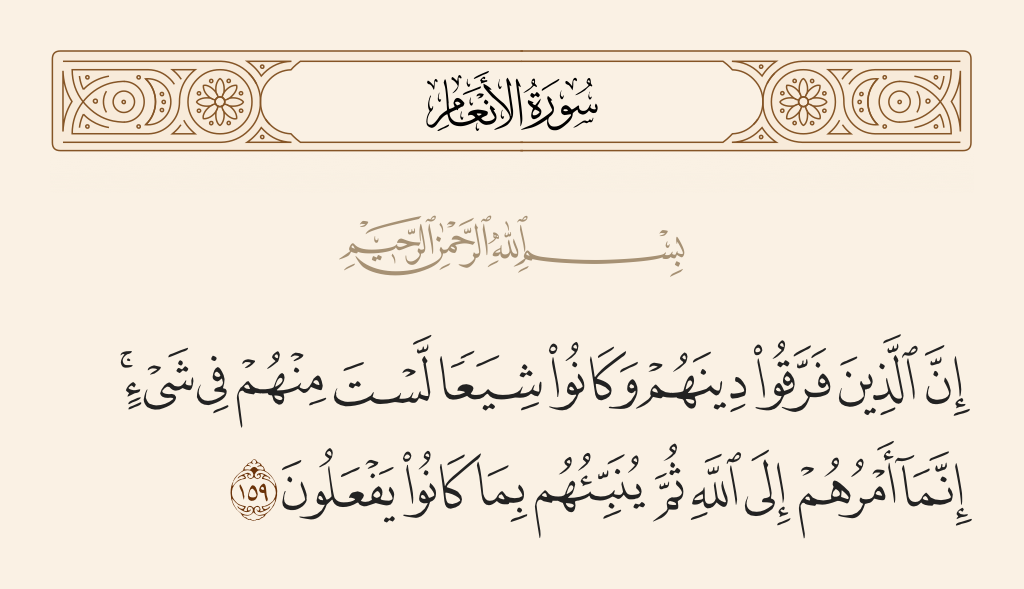 سُورَةُ الأَنْعَامِ
بِسْمِ ٱللَّهِ ٱلرَّحْمَٰنِ ٱلرَّحِيمِ
إِنَّ ٱلَّذِينَ فَرَّقُوا۟ دِينَهُمْ وَكَانُوا۟ شِيَعًا لَّسْتَ مِنْهُمْ فِى شَىْءٍ ۚ
إِنَّمَآ أَمْرُهُمْ إِلَى ٱللَّهِ ثُمَّ يُنَبِّئُهُم بِمَا كَانُوا۟ يَفْعَلُونَ ١٥٩